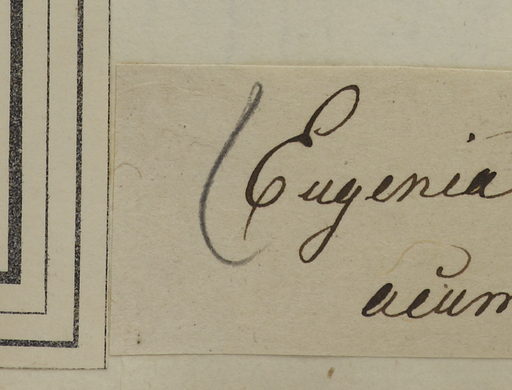 (Eugenia
acum